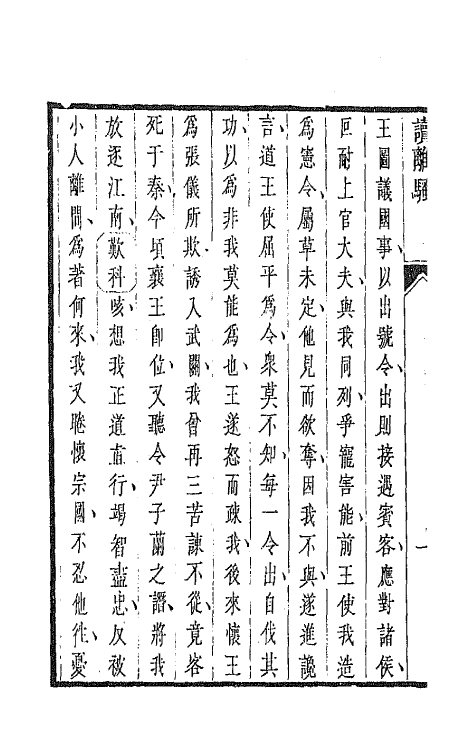 讀離騷
一
王圖議國事、以出號令、出則接遇賓客、應對諸侯、
叵耐上官大夫、與我同列、爭寵害能、前王使我造
為憲令、屬草未定、他見而欲奪、因我不與、遂進讒
言、道王使屈平為令、衆莫不知、每一令出、自伐其
功、以為非我莫能為也、王遂怒而疎我、後來懷王
為張儀所欺、誘入武關、我曾再三苦諫、不從、竟客
死于秦、今頃襄王卽位、又聽令尹子蘭之譖、將我
放逐江南、歎科咳、想我正道直行、竭智盡忠、反被
小人離間、為著何來、我又睠懷宗國、不忍他徃、憂